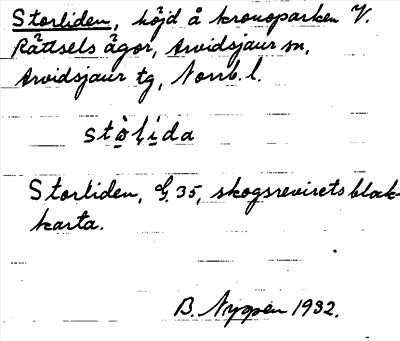 Storliden, höjd å kronoparken V.
Rättsels ägor, Arvidsjaur sn,
Arvidsjaur tg, Norrb. l.
stò̩l̩i̩da
Storliden, G 35, skogsrevirets block-
karta.
B. Nygren 1932.